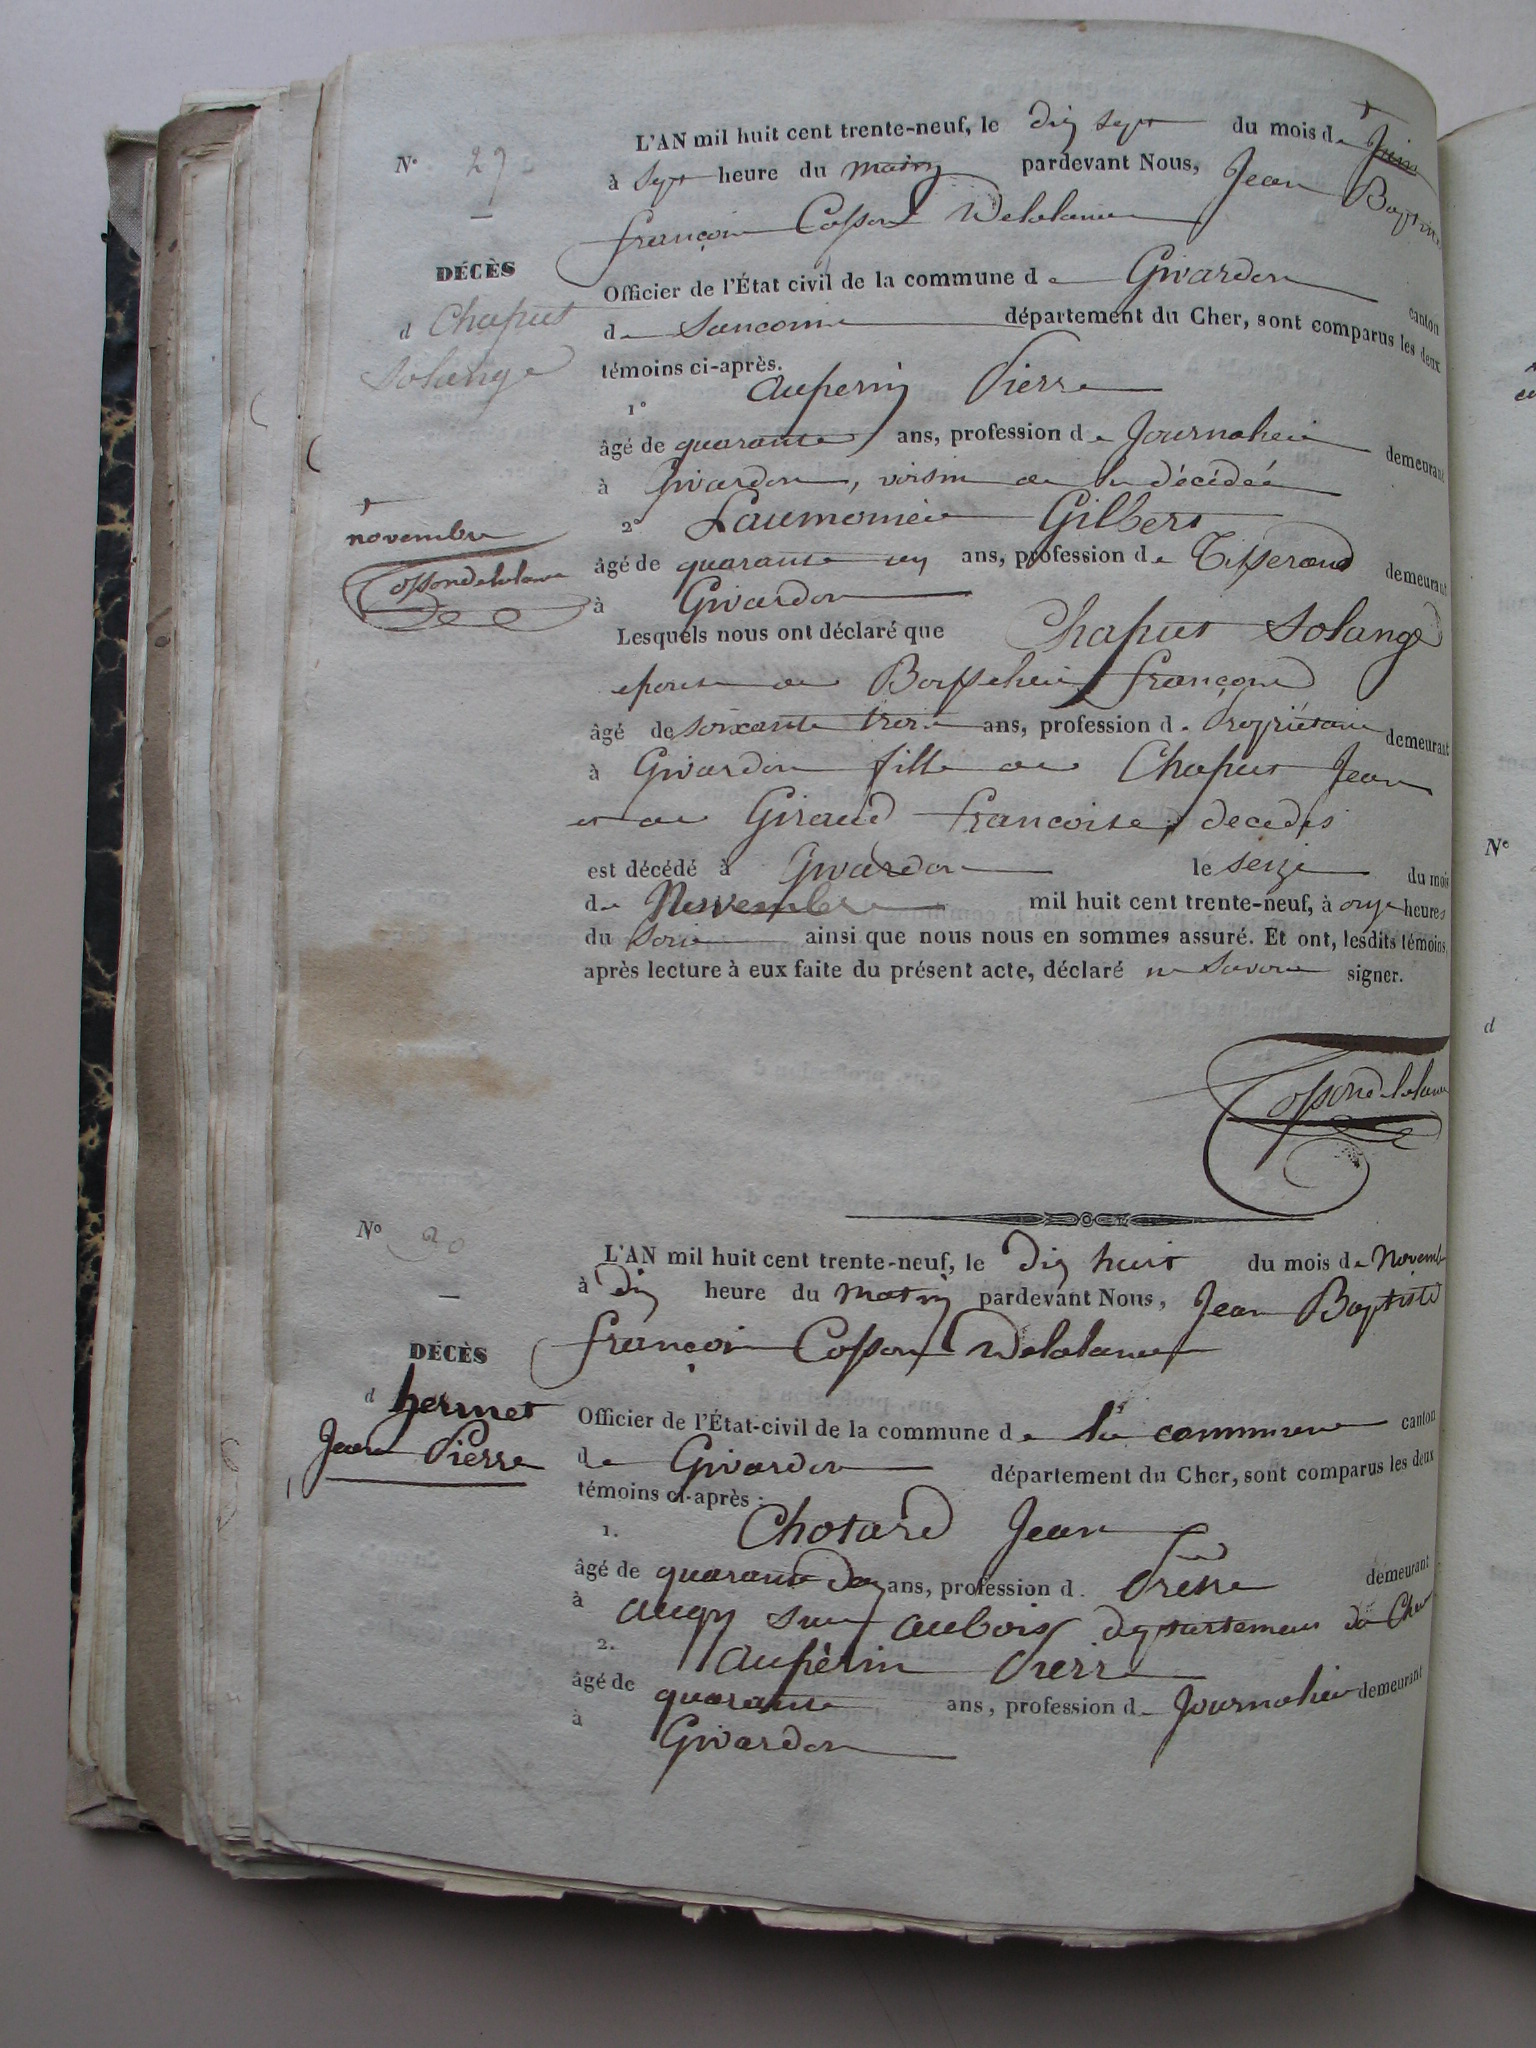 L'AN mil huit cent trente-neuf, le dix sept du mois de Juin
N° 29 à sept heure du matin pardevant Nous, Jean Baptiste
françois Cosson Delalanne
DÉCÈS
d Chaput
Solange
Officier de l'État civil de la commune de Givardon canton
de Sancoins département du Cher, sont comparus les deux
témoins ci-après.
1° auperin Pierre
âgé de quarante ans, profession de Journalier demeurant
à Givardon, voisin de la décédée
2° Laumonier Gilbert
novembre
Cossondelalanne
âgé de quarante un ans, profession de Tisserand demeurant
à Givardon
Lesquels nous ont déclaré que Chaput Solange
epouse de françois
âgé de soixante treize ans, profession d. Propriétaire demeurant
à Givardon fille de Chaput Jean
et de Giraud francoise decedés
est décédé à Givardon le seize du mois
de Novembre mil huit cent trente-neuf, à onze heures
du soir ainsi que nous nous en sommes assuré. Et ont, lesdits témoins,
après lecture à eux faite du présent acte, déclaré ne savoir signer.
Cossondelalanne
N° 30
L'AN mil huit cent trente-neuf, le dix huit du mois de Novembre
à dix heure du matin pardevant Nous, Jean Baptiste
françois Cosson Delalanne
DÉCÈS
d hermet
Jean Pierre
Officier de l'État-civil de la commune de la commune canton
de Givardon département du Cher, sont comparus les deux
témoins ci-après :
1. Chotard Jean
âgé de quarante ans, profession d. demeurant
à augy sur aubois departement du Cher
2. aupérin Pierre
âgé de quarante ans, profession de Journalier demeurant
à Givardon